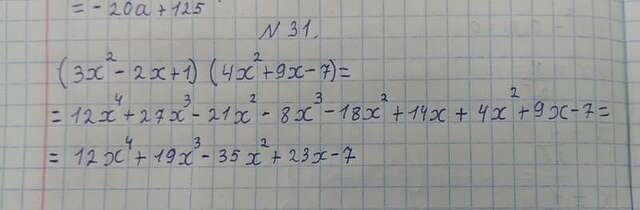 = -20a + 125
N 31.
(3x² - 2x + 1) (4x² + 9x - 7) =
= 12x⁴ + 27x³ - 21x² - 8x³ - 18x² + 14x + 4x² + 9x - 7 =
= 12x⁴ + 19x³ - 35x² + 23x - 7